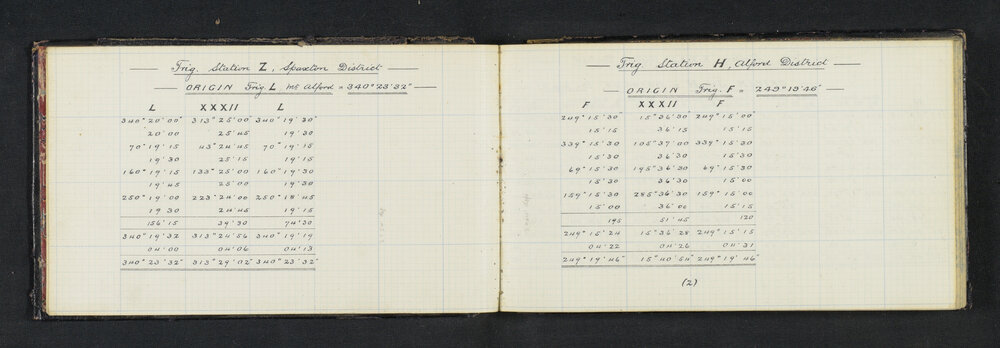 Trig. Station Z, Spaxton District
ORIGIN Trig. L, Mt Alford = 340° 23' 32"
L XXXII L
340° 20' 00" 313° 25' 00" 340° 19' 30"
20' 00 25' 45 19' 30
70° 19' 15 43° 24' 45 70° 19' 15
19' 30 25' 15 19' 15
160° 19' 15 133° 25' 00 160° 19' 30
19' 45 25' 00 19' 30
250° 19' 00 223° 24' 00 250° 18' 45
19' 30 24' 45 19' 15
156' 15 39' 30 74' 30
340° 19' 32 313° 24' 56 340° 19' 19
04' 00 04' 06 04' 13
340° 23' 32" 313° 29' 02" 340° 23' 32"
Trig Station H, Alford District
ORIGIN Trig. F = 249° 19' 46"
F XXXII F
249° 15' 30" 15° 36' 30" 249° 15' 00"
15' 15 36' 15 15' 15
339° 15' 30 105° 37' 00 339° 15' 30
15' 30 36' 30 15' 30
69° 15' 30 195° 36' 30 69° 15' 30
15' 30 36' 30 15' 00
159° 15' 30 285° 36' 30 159° 15' 00
15' 00 36' 00 15' 15
195 51' 45 120
249° 15' 24 15° 36' 28 249° 15' 15
04' 22 04' 26 04' 31
249° 19' 46" 15° 40' 54" 249° 19' 46"
(2)